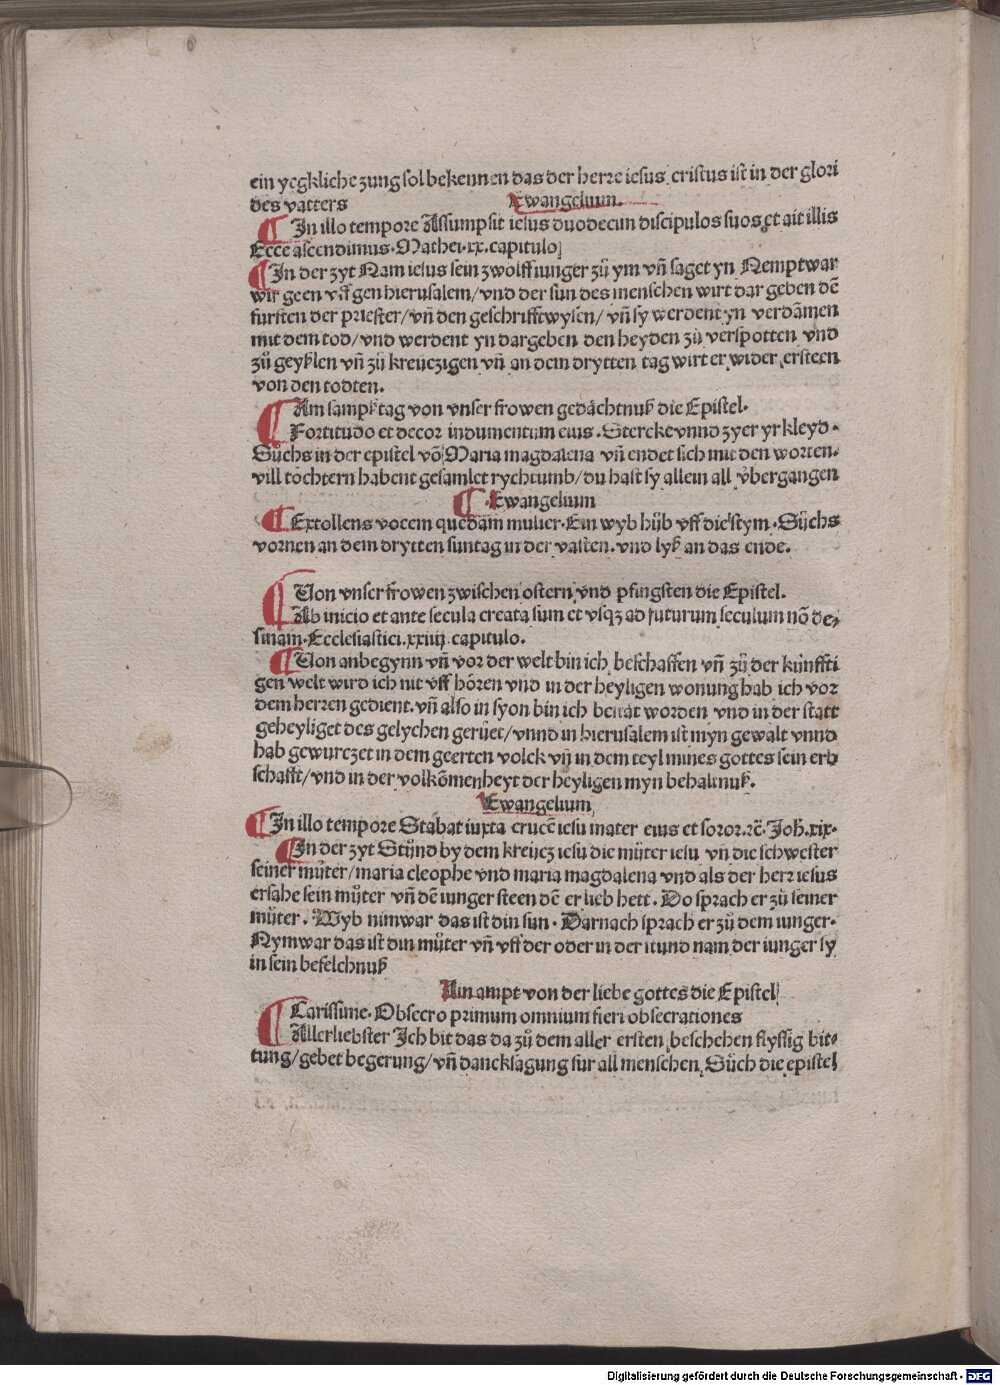 ein yegkliche zung sol bekennen das der herre iesus cristus ist in der glori
des vatters Ewangelium.
¶ In illo tempore Assumpsit iesus duodecim discipulos suos et ait illis
Ecce ascendimus. Mathei. xx. capitulo
¶ In der zyt Nam iesus sein zwölff iunger zů ym vñ saget yn Nemptwar
wir geen vff gen hierusalem/vnd der sun des menschen wirt dar geben dē
fursten der priester/vñ den geschrifftwysen/vñ sy werdent yn verdāmen
mit dem tod/vnd werdent yn dargeben den heyden zů verspotten vnd
zů geyßlen vñ zů kreüczigen vñ an dem drytten tag wirt er wider ersteen
von den todten.
¶ Am sampßtag von vnser frowen gedächtnuß die Epistel.
Fortitudo et decor indumentum eius. Stercke vnnd zyer yr kleyd.
Sůchs in der epistel vō Maria magdalena vñ endet sich mit den worten.
vill töchtern habent gesamlet rychtumb/du hast sy allein all v̈bergangen
¶ Ewangelium
¶ Extollens vocem quedam mulier. Ein wyb hůb vff die stym. Sůchs
vornen an dem drytten suntag in der vasten. vnd lyß an das ende.
¶ Von vnser frowen zwischen ostern vnd pfingsten die Epistel.
Ab inicio et ante secula creata sum et vsqꝫ ad futurum seculum nō de-
sinam. Ecclesiastici. xxiiij. capitulo.
¶ Von anbegynn vñ vor der welt bin ich beschaffen vñ zů der künffti
gen welt wird ich nit vff hören vnd in der heyligen wonung hab ich vor
dem herren gedient. vñ also in syon bin ich bestät worden vnd in der statt
geheyliget des gelychen gerüet/vnnd in hierusalem ist myn gewalt vnnd
hab gewurczet in dem geerten volck vñ in dem teyl mines gottes sein erb
schafft/vnd in der volkōmenheyt der heyligen myn behaltnuß.
Ewangelium
¶ In illo tempore Stabat iuxta crucē iesu mater eius et soror. ꝛc̄. Joh̄. xix.
¶ In der zyt Stůnd by dem kreücz iesu die můter iesu vñ die schwester
seiner můter/maria cleophe vnd maria magdalena vnd als der herr iesus
ersahe sein můter vñ dē iunger steen dē er lieb hett. Do sprach er zů seiner
můter. Wyb nimwar das ist din sun. Darnach sprach er zů dem iunger.
Nymwar das ist din můter vñ vff der oder in der stund nam der iunger sy
in sein befelchnuß
Ain ampt von der liebe gottes die Epistel
¶ Carissime. Obsecro primum omnium fieri obsecrationes
Allerliebster Ich bit das da zů dem aller ersten beschehen flyssig bit-
tung/gebet begerung/vñ dancksagung für all menschen, Sůch die epistel
Digitalisierung gefördert durch die Deutsche Forschungsgemeinschaft - DFG